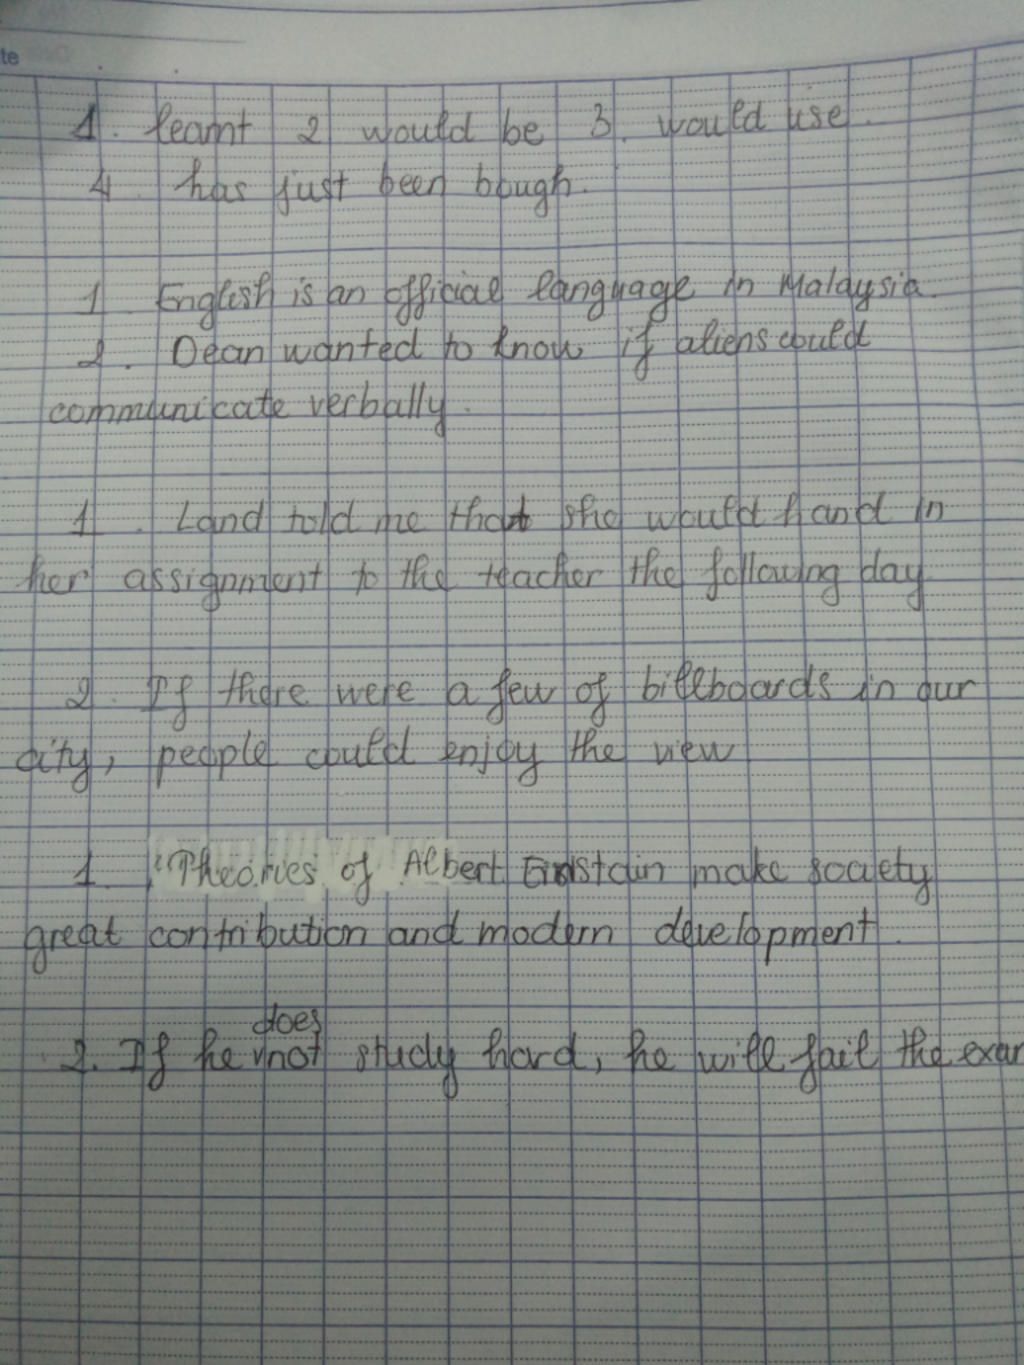 te
1. learnt 2 would be 3. would use.
4. has just been bough.
1 English is an official language in Malaysia.
2. Dean wanted to know if aliens could
communicate verbally.
1. Land told me that she would hand in
her assignment to the teacher the following day
2. If there were a few of billboards in our
city, people could enjoy the view
1. "Theories of Albert Einstain make society
great contribution and modern development.
does
2. If he not study hard, he will fail the exam